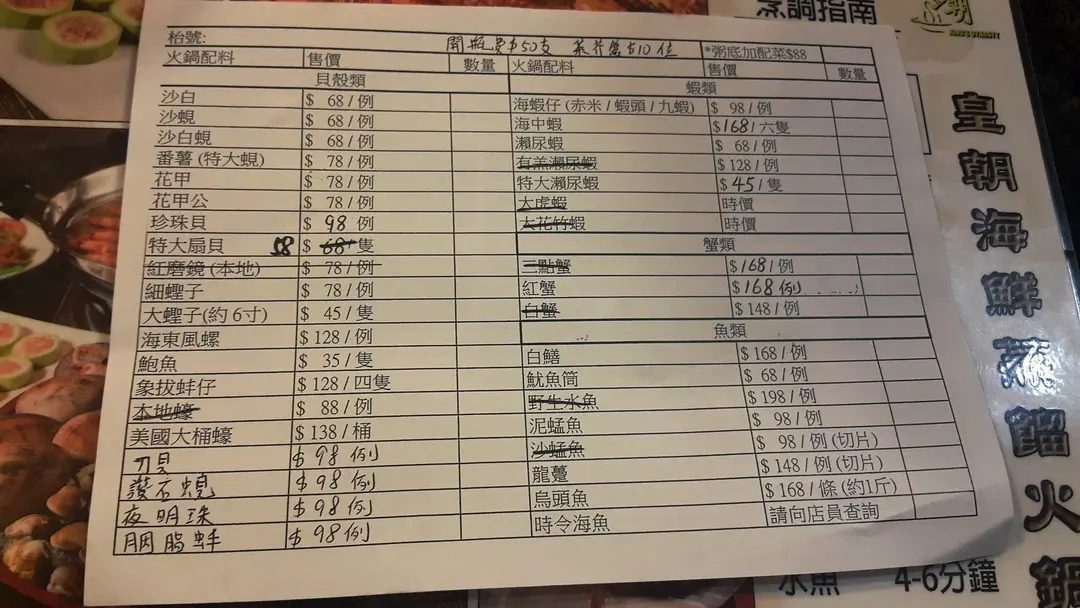 烹調指南
枱號:
開瓶費$50支 蒸芥醬$10位
*粥底加配菜$88
火鍋配料 售價 數量
貝殼類
沙白 $ 68/例
沙蜆 $ 68/例
沙白蜆 $ 68/例
番薯(特大蜆) $ 78/例
花甲 $ 78/例
花甲公 $ 78/例
珍珠貝 $ 98 例
特大扇貝 58 $ 68/隻
紅磨鏡(本地) $ 78/例
細蟶子 $ 78/例
大蟶子(約6寸) $ 45/隻
海東風螺 $ 128/例
鮑魚 $ 35/隻
象拔蚌仔 $ 128/四隻
本地蠔 $ 88/例
美國大桶蠔 $ 138/桶
刀貝 $ 98 例
讚岩蜆 $ 98 例
夜明珠 $ 98例
胭脂蚌 $ 98例
火鍋配料 售價 數量
蝦類
海蝦仔(赤米/蝦頭/九蝦) $ 98/例
海中蝦 $168/六隻
瀨尿蝦 $ 68/例
有羔瀨尿蝦 $ 128/例
特大瀨尿蝦 $ 45/隻
大虎蝦 時價
大花竹蝦 時價
蟹類
三點蟹 $168/例
紅蟹 $168例
白蟹 $ 148/例
魚類
白鱔 $ 168/例
魷魚筒 $ 68/例
野生水魚 $ 198/例
泥蜢魚 $ 98/例
沙蜢魚 $ 98/例(切片)
龍躉 $ 148/例(切片)
烏頭魚 $ 168/條(約1斤)
時令海魚 請向店員查詢
皇朝海鮮蒸餾火鍋
水魚 4-6分鐘